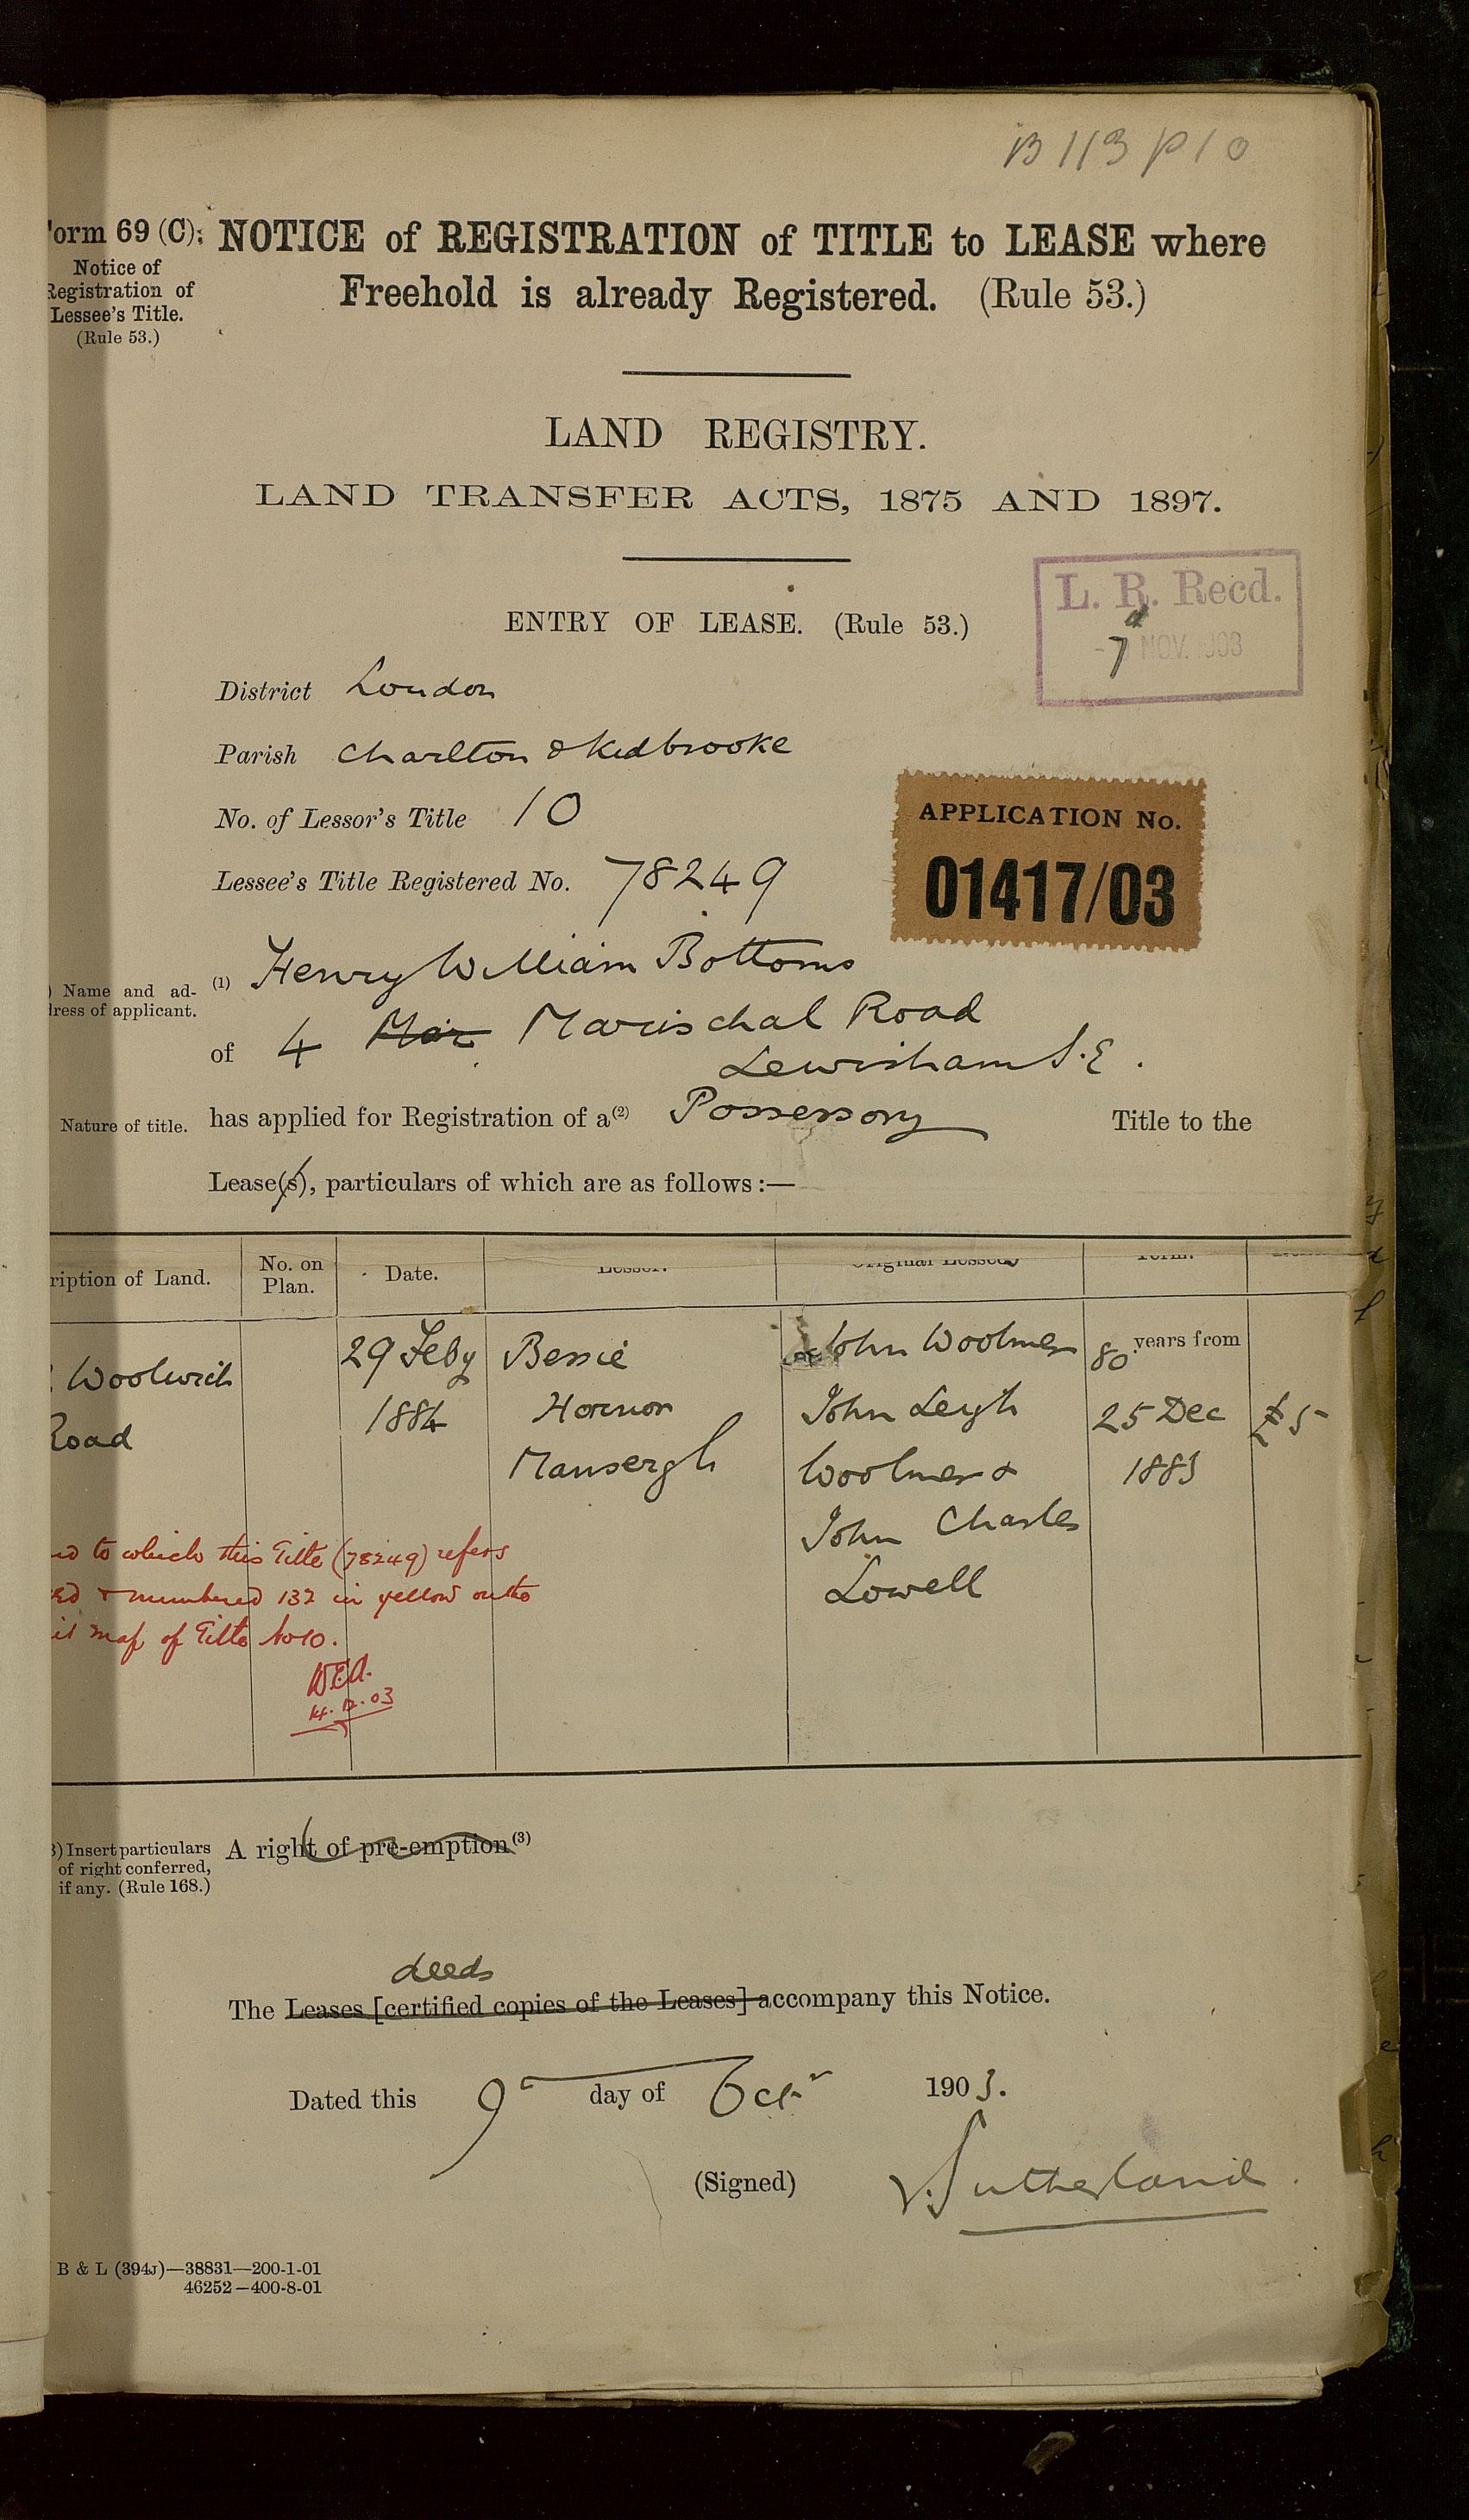 B 113 P 10
orm 69 (C). NOTICE of REGISTRATION of TITLE to LEASE where
Freehold is already Registered. (Rule 53.)
Notice of
Registration of
Lessee's Title.
(Rule 53.)
LAND REGISTRY.
LAND TRANSFER ACTS, 1875 AND 1897.
L. R. Recd.
-7 NOV. 1903
ENTRY OF LEASE. (Rule 53.)
District London
Parish Charlton & Kidbrooke
No. of Lessor's Title 10
Lessee's Title Registered No. 78249
APPLICATION No.
01417/03
) Name and ad-
dress of applicant.
(1) Henry William Bottoms
of 4 Mar Marischal Road
Lewisham S.E.
Nature of title.
has applied for Registration of a(2) Possessory Title to the
Lease(s), particulars of which are as follows:—
ription of Land. No. on Plan. Date. Lessor. Original Lessee Term.
Woolwich 29 Feby Bessie John Woolmer 80 years from
Road 1884 Hornor John Leigh 25 Dec £5
Mansergh Woolmer & 1883
John Charles
Lowell
to which this Title (78249) refers
ed & numbered 132 in yellow on the
map of Title No 10.
14.12.03
) Insert particulars
of right conferred,
if any. (Rule 168.)
A right of pre-emption(3)
deeds
The Leases [certified copies of the Leases] accompany this Notice.
Dated this 9 day of Oct 1903.
(Signed) Sutherland
B & L (394J)—38831—200-1-01
46252—400-8-01